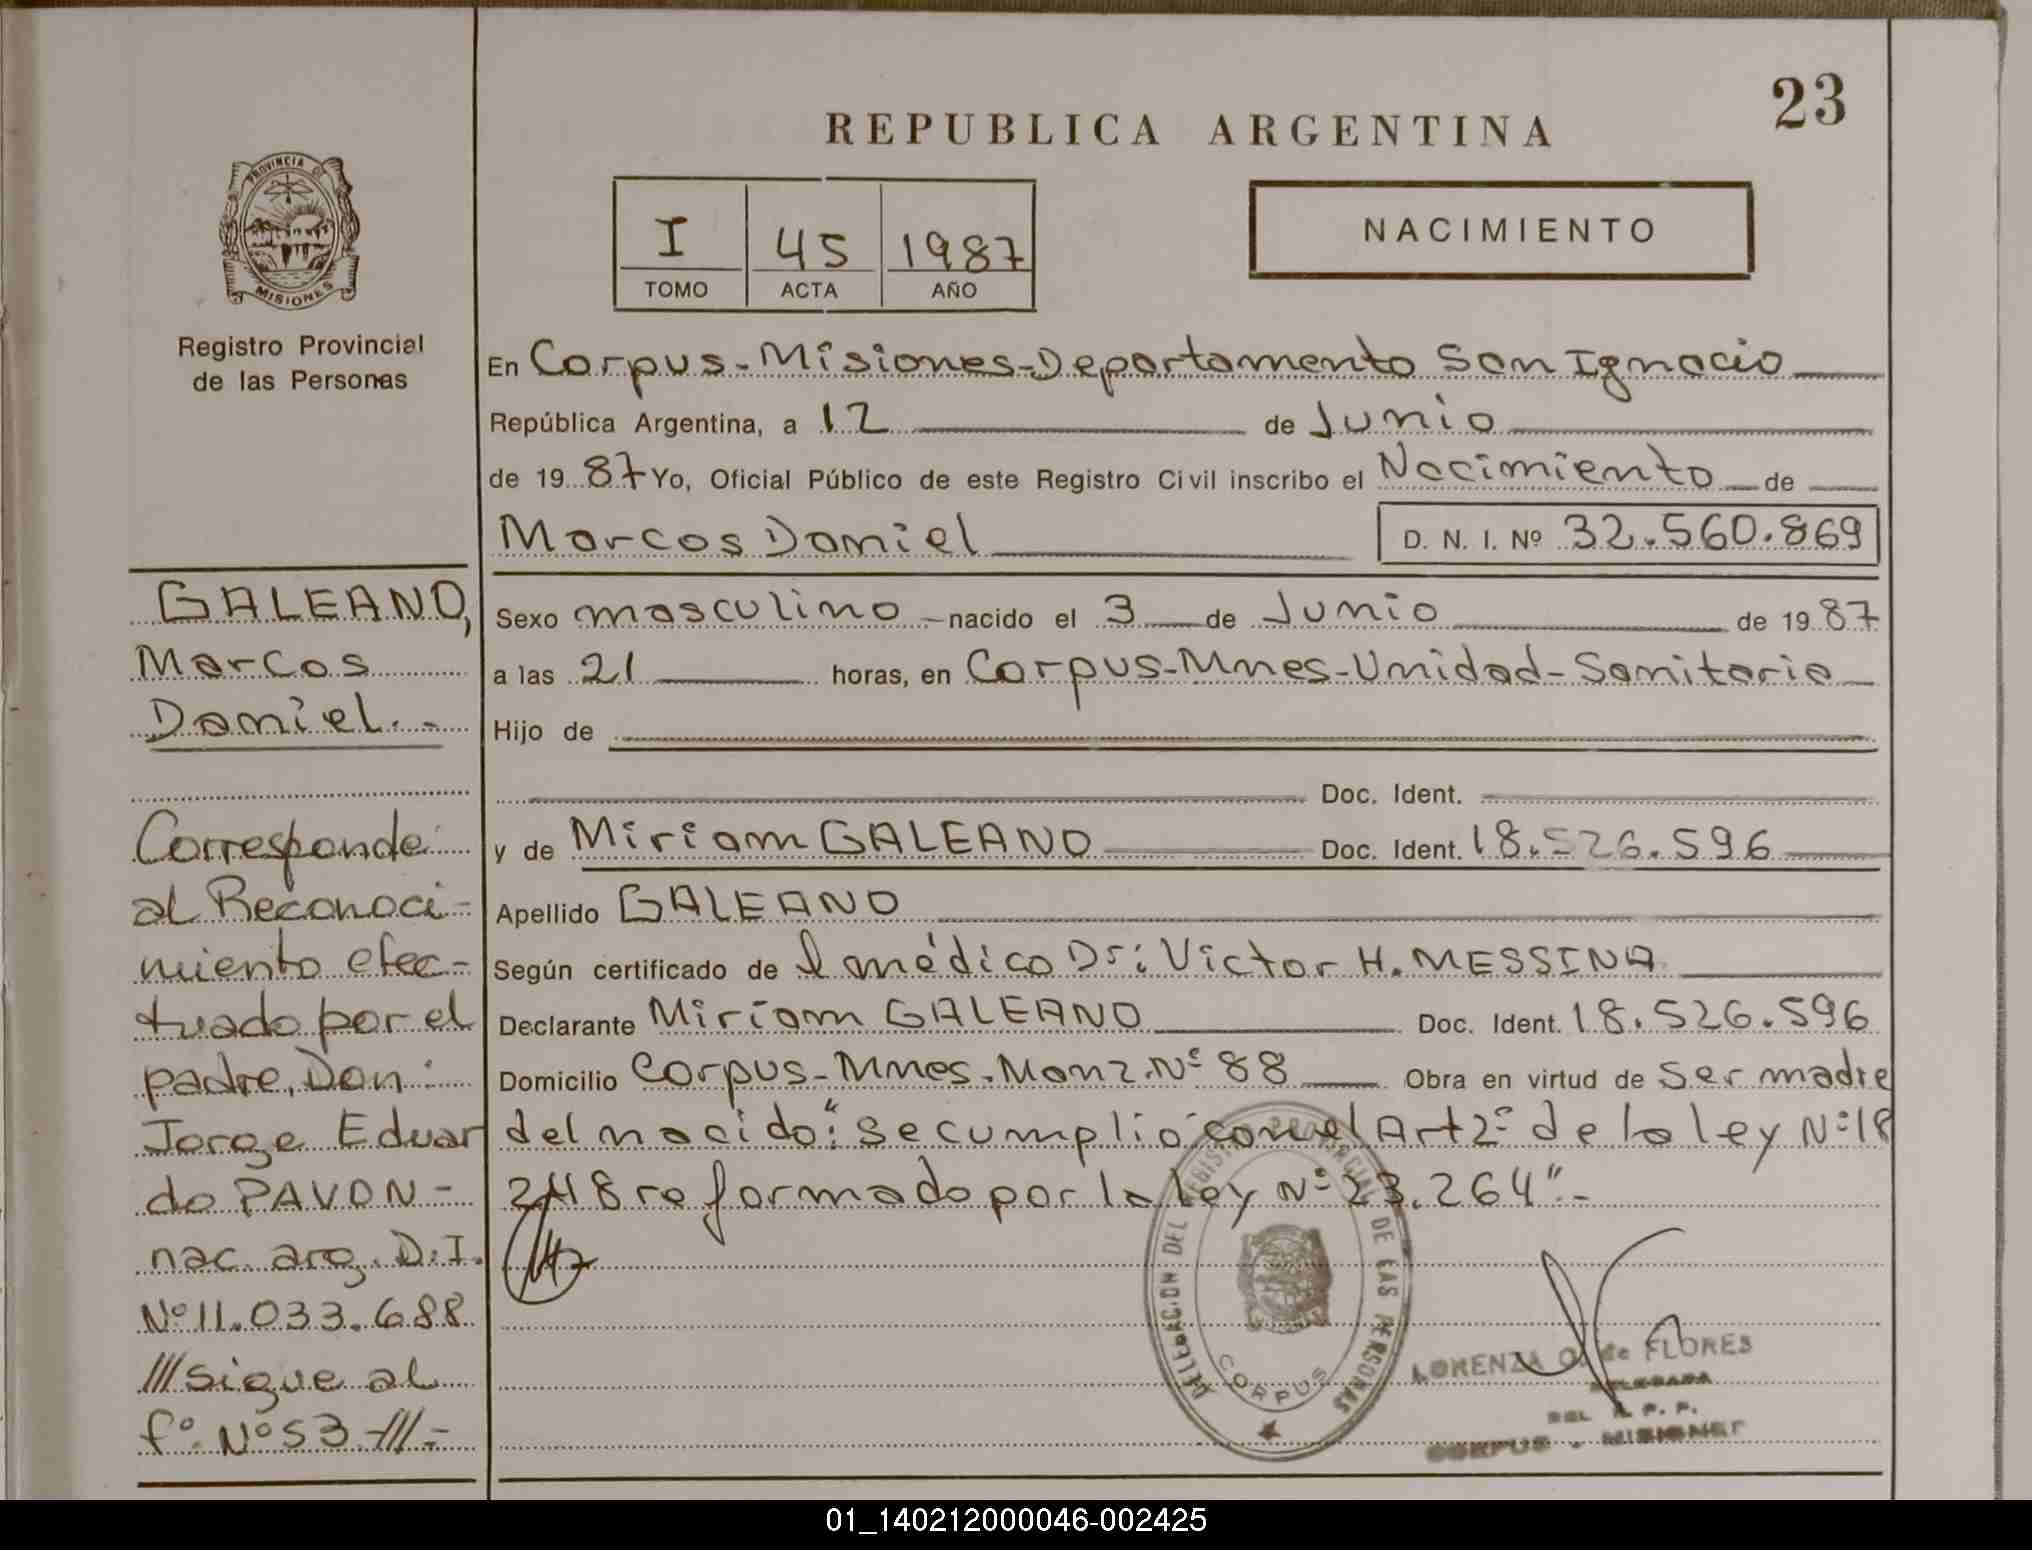 23
REPUBLICA ARGENTINA
PROVINCIA D
MISIONES
Registro Provincial
de las Personas
I 45 1987
TOMO ACTA AÑO
NACIMIENTO
En Corpus-Misiones-Departamento San Ignacio
República Argentina, a 12 de Junio
de 1987 Yo, Oficial Público de este Registro Civil inscribo el Nacimiento de
Marcos Daniel D. N. I. Nº 32.560.869
Sexo masculino nacido el 3 de Junio de 1987
a las 21 horas, en Corpus-Mnes-Unidad-Sanitaria
Hijo de
Doc. Ident.
y de Miriam GALEANO Doc. Ident. 18.526.596
Apellido GALEANO
Según certificado de l médico Dr: Victor H. MESSINA
Declarante Miriam GALEANO Doc. Ident. 18.526.596
Domicilio Corpus-Mnes.Manz.Nº 88 Obra en virtud de Ser madre
del nacido: "Se cumplió con el Art 2º de la ley Nº 18
248 reformado por la ley Nº 23.264".-
GALEANO,
Marcos
Daniel.-
Corresponde
al Reconoci-
miento efec-
tuado por el
padre, Don
Jorge Eduar
do PAVON-
nac. arg. D.I.
Nº 11.033.688
///sigue al
fº. Nº 53-///.-
DELEGACION DEL REGISTRO PROVINCIAL DE LAS PERSONAS
CORPUS
LORENZA O. de FLORES
DELEGADA
DEL R. P. P.
CORPUS - MISIONES
01_140212000046-002425